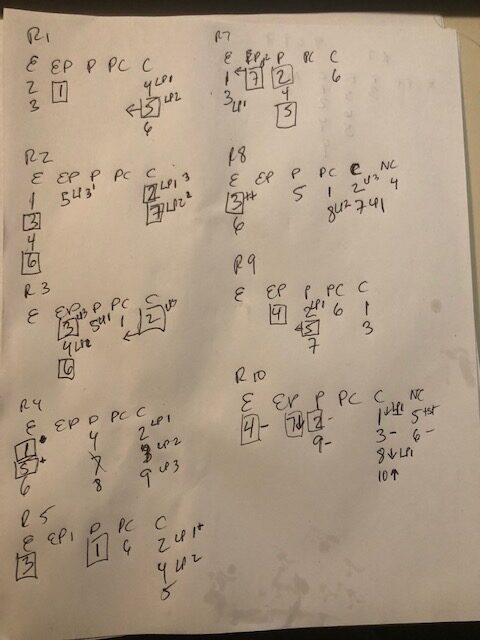 R1
E EP P PC C
2 1 4 LP1
3 ← 5 LP2
6
R2
E EP P PC C
1 5 2 LP1 3
3 7 LP2 2
4
6
R3
E EP P PC C
3 5 1 2
4 LP2 ←
6
R4
E EP P PC C
1 4 2 LP1
5 + 7 3 LP2
6 8 9 LP3
R5
E EP1 P PC C
3 1 6 2 LP1+
4 LP2
5
R7
E EP P PC C
1 ← 7 2 6
3 LP1 4
5
R8
E EP P PC C NC
3 ++ 5 1 2 4
6 8 LP2 7 LP1
R9
E EP P PC C
4 2 LP1 6 1
← 5 3
7
R10
E EP P PC C NC
4 - 7 ↓ 2 - 1 ↓ LP1 5
9 - 3 - 6 -
8 ↓ LP1
10 ↑